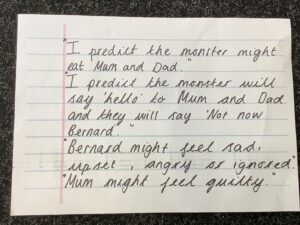 "I predict the monster might
eat Mum and Dad."
"I predict the monster will
say 'hello' to Mum and Dad
and they will say 'Not now
Bernard.'"
"Bernard might feel sad,
upset, angry or ignored.
"Mum might feel guilty."